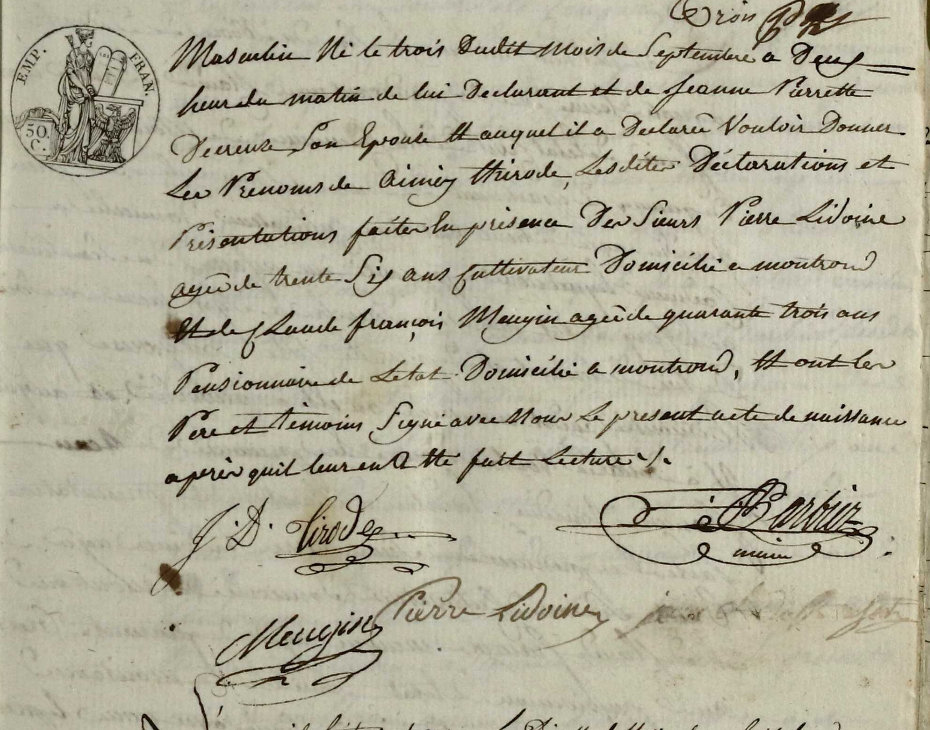 Trois
EMP. FRAN.
50. C.
Masculin Né le trois Dudit Mois de Septembre a Deux
heur du matin de lui Declarant et de Jeanne Pierrette
Decreuse Son Epouse Et auquel il a Declaré Vouloir Donner
Les Prenoms de Aimey thirode, Lesdites Déclarations et
Présentations faites En présence Des Sieurs Pierre Lidoine
agée de trente Six ans Cultivateur Domicilié a montrond
Et de Claude françois Meugin agée de quarante trois ans
Pensionnaire de Letat Domicilié a montrond, Et ont les
Pere et témoins Signé avec Nous Le présent acte de naissance
après quil leur en a Eté fait Lecture ./.
J. D. Tirode
Barbier
maire
Meugin
Pierre Lidoine